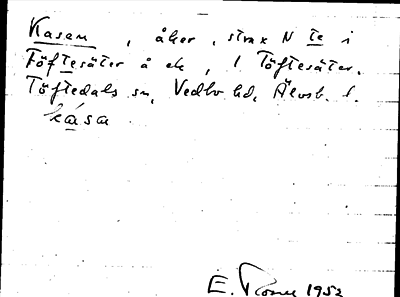 Kasan, åker, strax N te i
Töftesäter å ek, 1 Töftesäter,
Töftedals sn, Vedbo hd, Älvsb. l.
kása
E. 1952